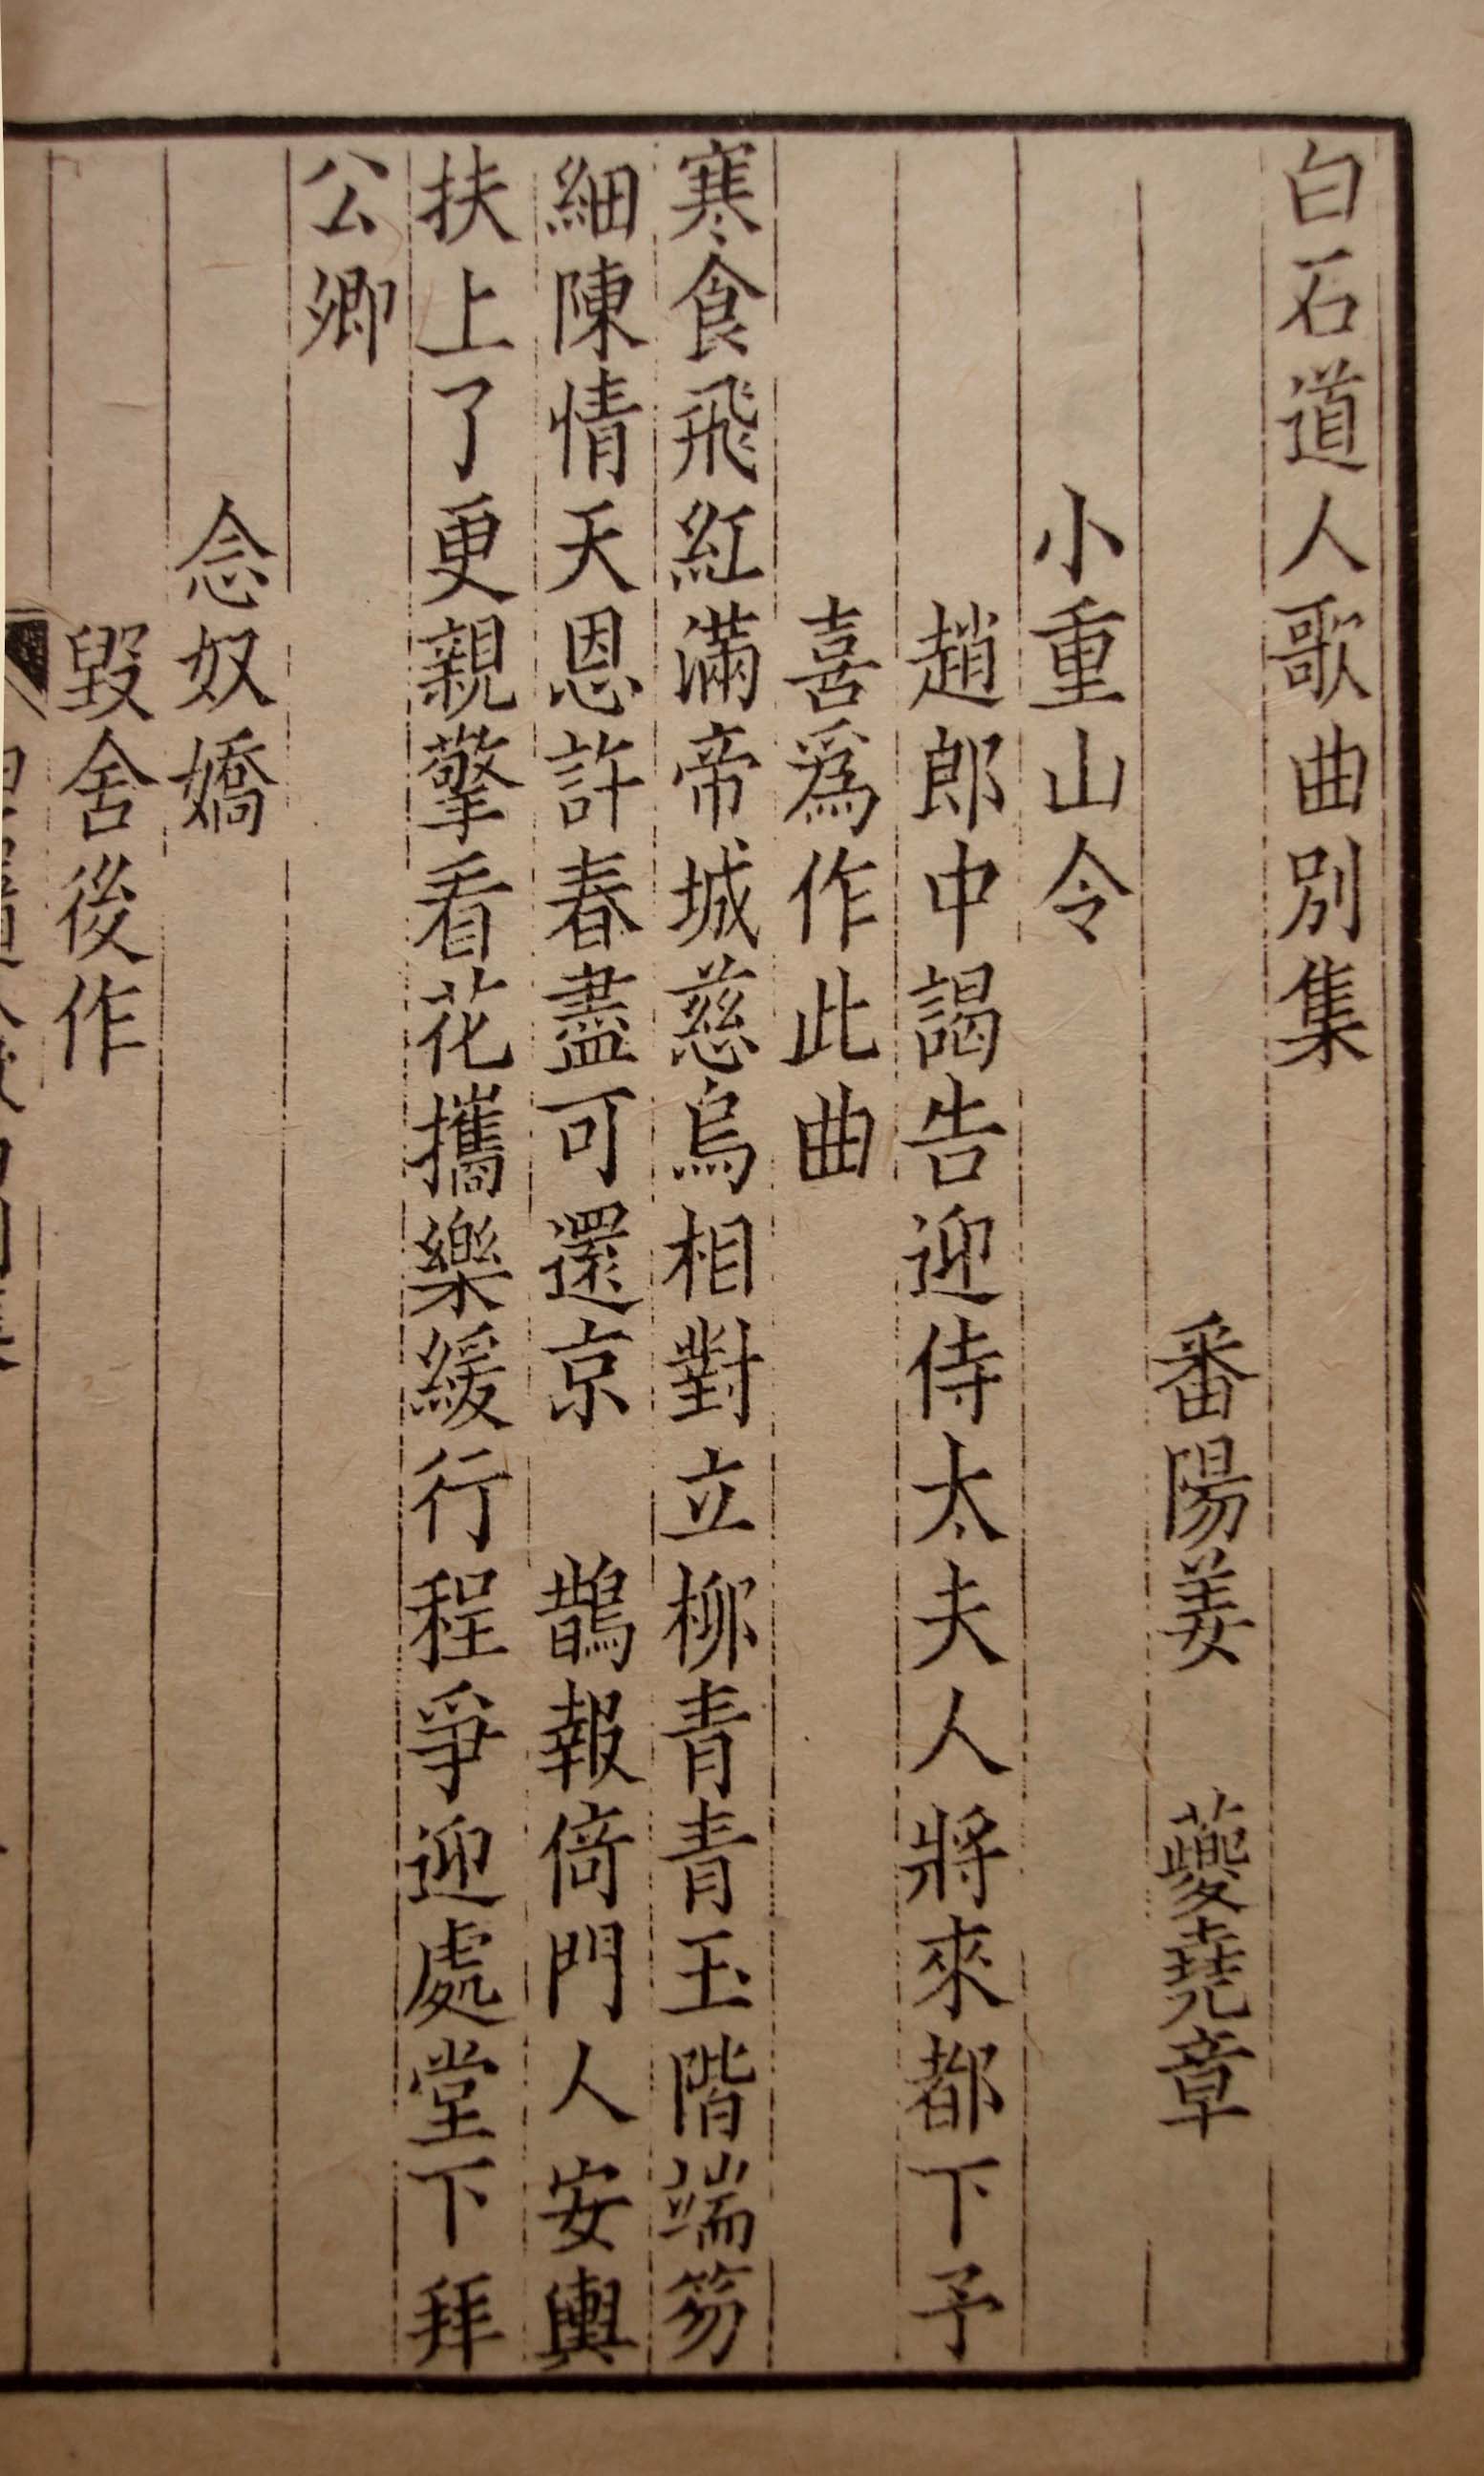 白石道人歌曲別集
番陽姜　夔堯章
小重山令
趙郎中謁告迎侍太夫人將來都下予
喜爲作此曲
寒食飛紅滿帝城慈烏相對立柳青青玉階端笏
細陳情天恩許春盡可還京　鵲報倚門人安輿
扶上了更親擎看花攜樂緩行程爭迎處堂下拜
公卿
念奴嬌
毀舍後作